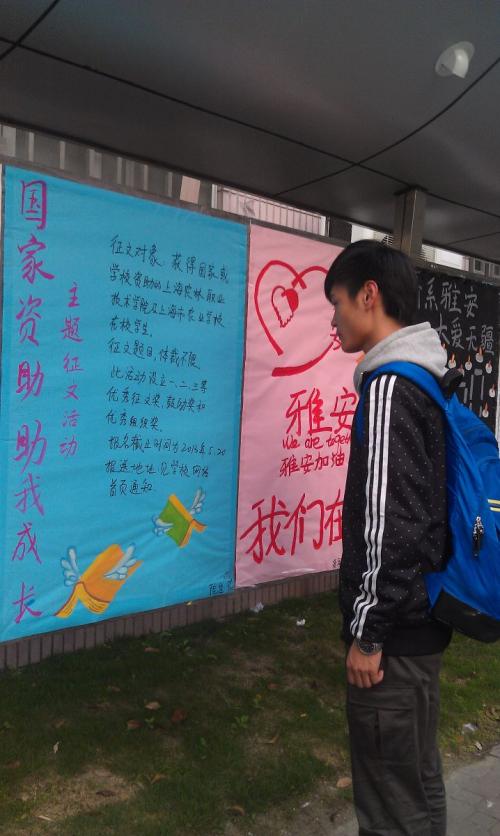 国家资助 助我成长
主题征文活动
征文对象：获得国家或
学校资助的上海农林职业
技术学院及上海市农业学校
在校学生.
征文题目,体裁不限.
此活动设立一、二、三等
优秀征文奖,鼓励奖和
优秀组织奖.
报名截止时间为2013年5.20
投递地址见学校网站
首页通知.
雅安
We are togeth
雅安加油
我们在
系雅安
大爱无疆